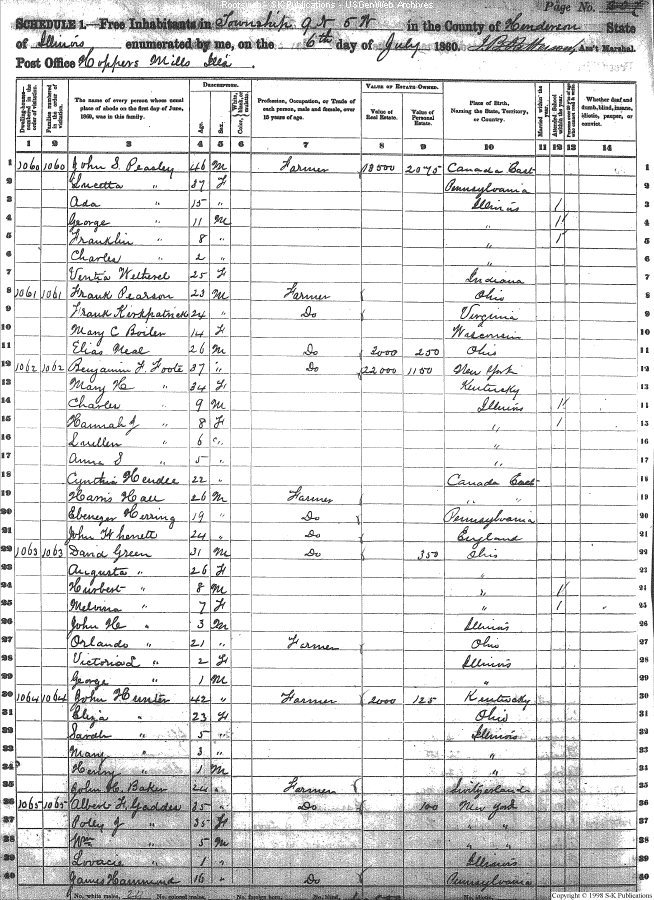 OLD PUBLICATIONS - USGenWeb Archives
Page No.
SCHEDULE 1.—Free Inhabitants in Township 9 N 5 W in the County of Henderson State
of Illinois enumerated by me, on the 6th day of July 1860. Ass't Marshal.
Post Office Hoppers Mills Ills.
DESCRIPTION. VALUE OF ESTATE OWNED.
Dwelling-houses—numbered in the order of visitation. Families numbered in the order of visitation. The name of every person whose usual place of abode on the first day of June, 1860, was in this family. Age. Sex. Color, Profession, Occupation, or Trade of each person, male and female, over 15 years of age. Value of Real Estate. Value of Personal Estate. Place of Birth, Naming the State, Territory, or Country. Married within the year. Attended School within the year. Whether deaf and dumb, blind, insane, idiotic, pauper, or convict.
1 2 3 4 5 6 7 8 9 10 11 12 13 14
1 1060 1060 John S. Peasley 46 M Farmer 18500 2075 Canada East 1
2 Lucetta " 37 F Pennsylvania 2
3 Ada " 15 " Illinois 1 3
4 George " 11 M " 1 4
5 Franklin " 8 " " 1 5
6 Charles " 2 " " 6
7 Wetherel 25 F Indiana 7
8 1061 1061 Frank Pearson 23 M Farmer Ohio 8
9 Frank Kirkpatrick 24 " Do Virginia 9
10 Mary C 14 F Wisconsin 10
11 Elias Neal 26 M Do 2000 250 Ohio 11
12 1062 1062 Benjamin F. Foote 37 " Do 22000 1150 New York 12
13 Mary H " 34 F Kentucky 13
14 Charles " 9 M Illinois 1 14
15 Hannah J " 8 F " 1 15
16 Luellen " 6 " " 16
17 Anna S " 5 " " 17
18 Cynthia Hendee 22 " Canada East 18
19 Harris Hall 26 M Farmer " " 19
20 Ebenezer Herring 19 " Do Pennsylvania 20
21 John 24 " Do England 21
22 1063 1063 David Green 31 M Do 350 Ohio 22
23 Augusta " 26 F " 23
24 Hurbert " 8 M " 1 24
25 Melvina " 7 F " 1 25
26 John H " 3 M Illinois 26
27 Orlando " 21 " Farmer Ohio 27
28 Victoria L " 2 F Illinois 28
29 George " 1 M " 29
30 1064 1064 John Hunter 42 " Farmer 2000 125 Kentucky 30
31 Eliza " 23 F Ohio 31
32 Sarah " 5 " Illinois 32
33 Mary " 3 " " 33
34 Henry " 1 M " 34
35 John H. Baker 24 " Farmer Switzerland 35
36 1065 1065 Albert F. Gaddes 35 " Do 100 New York 36
37 Polly J " 35 F " " 37
38 Wm " 5 M " " 38
39 Lovacie " 1 " Illinois 39
40 James Hammond 16 " Do Pennsylvania 40
No. white males, No. colored males, No. foreign born, No. blind,
Copyright © 1998 S-K Publications